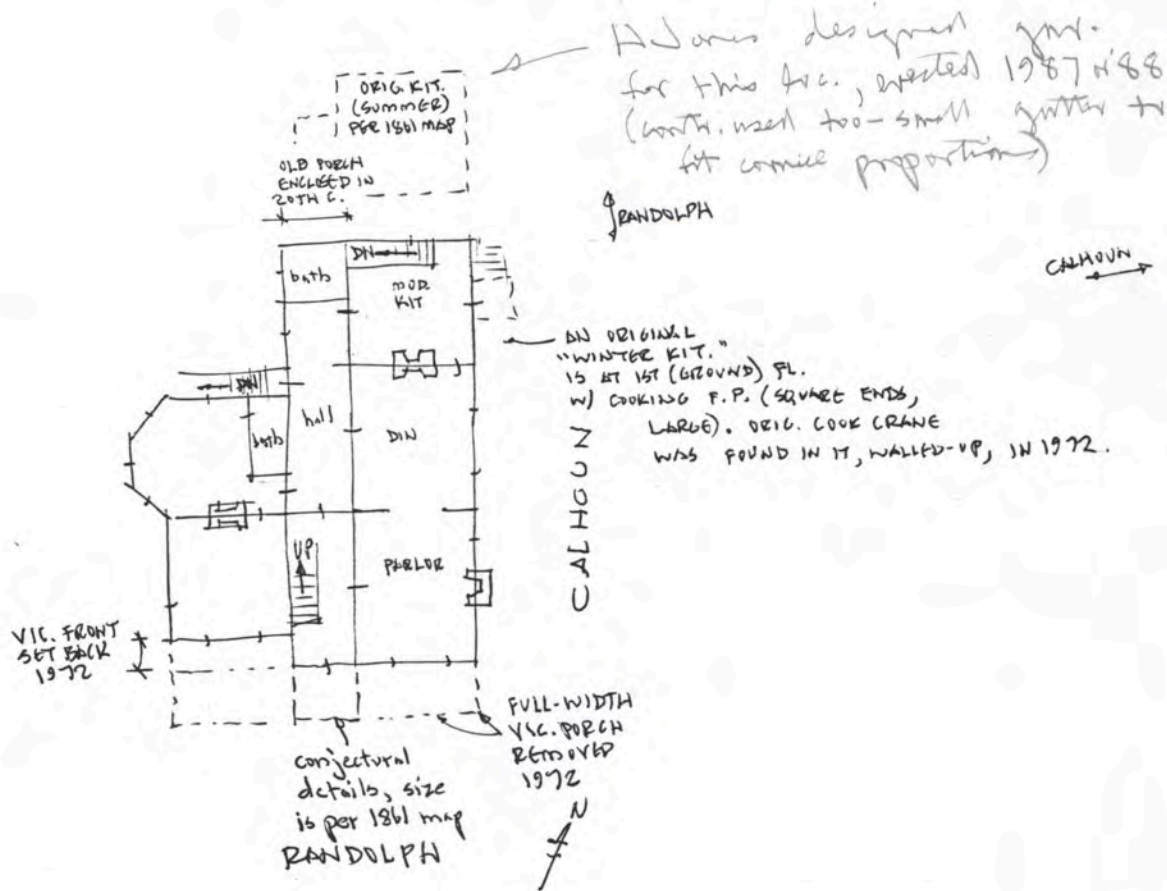 HJones designed gar.
for this loc., erected 1987 or '88
(contr. used too-small gutter to
fit cornice proportions)
ORIG. KIT.
(SUMMER)
PER 1861 MAP
OLD PORCH
ENCLOSED IN
20TH C.
RANDOLPH
CALHOUN
DN
bath
MOD.
KIT
AN ORIGINAL
"WINTER KIT."
IS AT 1ST (GROUND) FL.
W/ COOKING F.P. (SQUARE ENDS,
LARGE). ORIG. COOK CRANE
WAS FOUND IN IT, WALLED-UP, IN 1972.
DN
bath
hall
DIN
CALHOUN
UP
PARLOR
VIC. FRONT
SET BACK
1972
FULL-WIDTH
VIC. PORCH
REMOVED
1972
conjectural
details, size
is per 1861 map
RANDOLPH
N